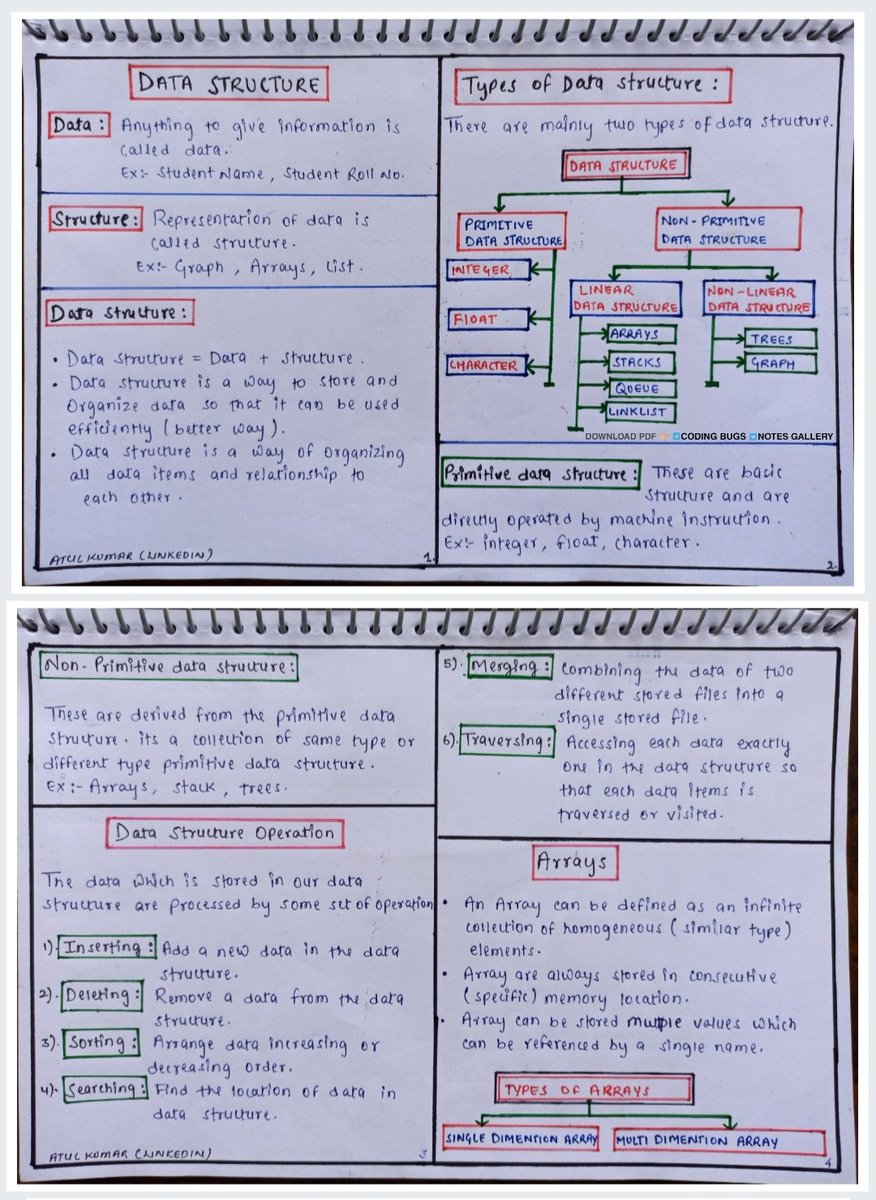 DATA STRUCTURE
Data: Anything to give information is
called data.
Ex:- Student Name, Student Roll No.
Structure: Representation of data is
called structure.
Ex:- Graph, Arrays, List.
Data structure:
• Data structure = Data + structure.
• Data structure is a way to store and
Organize data so that it can be used
efficiently (better way).
• Data structure is a way of organizing
all data items and relationship to
each other.
ATUL KUMAR (LINKEDIN)
1.
Types of Data structure:
There are mainly two types of data structure.
DATA STRUCTURE
PRIMITIVE
DATA STRUCTURE
NON-PRIMITIVE
DATA STRUCTURE
INTEGER
FLOAT
CHARACTER
LINEAR
DATA STRUCTURE
NON-LINEAR
DATA STRUCTURE
ARRAYS
STACKS
QUEUE
LINKLIST
TREES
GRAPH
DOWNLOAD PDF CODING BUGS NOTES GALLERY
Primitive data structure: These are basic
structure and are
directly operated by machine instruction.
Ex:- integer, float, character.
2.
Non-Primitive data structure:
These are derived from the primitive data
structure. its a collection of same type or
different type primitive data structure.
Ex:- Arrays, stack, trees.
Data Structure Operation
The data which is stored in our data
structure are processed by some set of operation
1). Inserting: Add a new data in the data
structure.
2). Deleting: Remove a data from the data
structure.
3). Sorting: Arrange data increasing or
decreasing order.
4). Searching: Find the location of data in
data structure.
ATUL KUMAR (LINKEDIN)
3
5). Merging: Combining the data of two
different stored files into a
single stored file.
6). Traversing: Accessing each data exactly
one in the data structure so
that each data items is
traversed or visited.
Arrays
• An Array can be defined as an infinite
collection of homogeneous (similar type)
elements.
• Array are always stored in consecutive
(specific) memory location.
• Array can be stored multple values which
can be referenced by a single name.
TYPES OF ARRAYS
SINGLE DIMENTION ARRAY
MULTI DIMENTION ARRAY
4